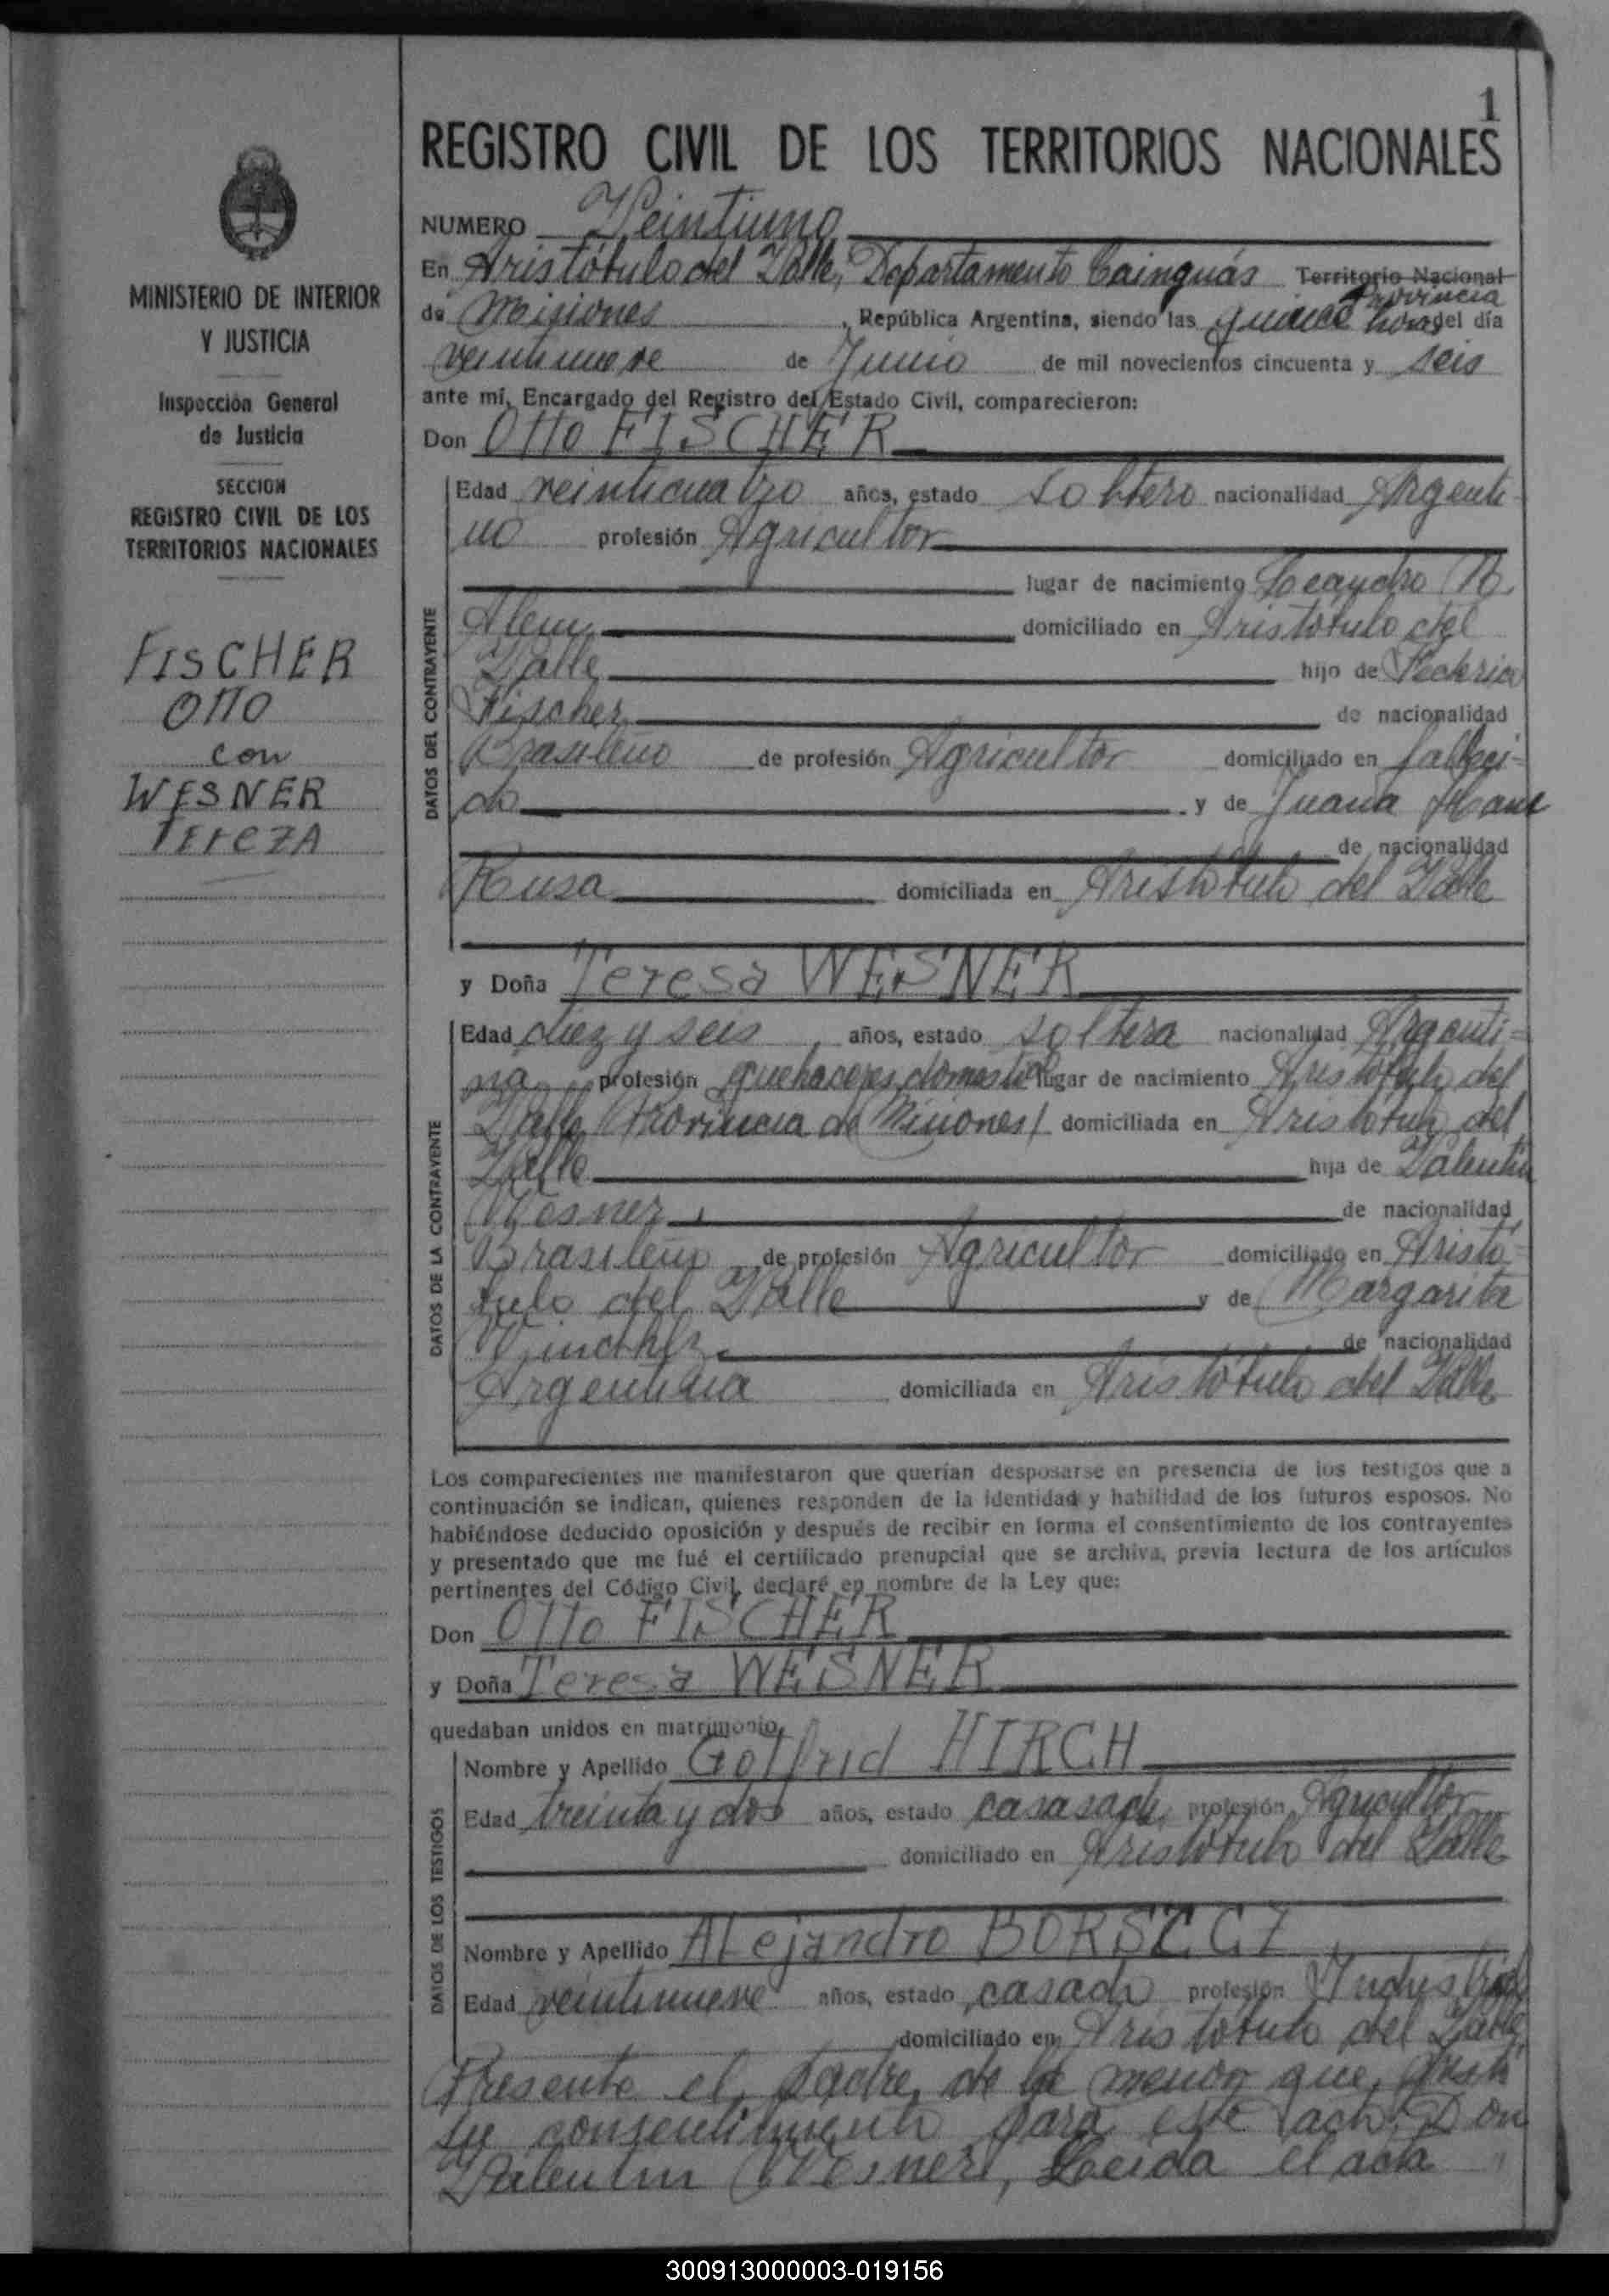 1
REGISTRO CIVIL DE LOS TERRITORIOS NACIONALES
MINISTERIO DE INTERIOR
Y JUSTICIA
Inspección General
de Justicia
SECCION
REGISTRO CIVIL DE LOS
TERRITORIOS NACIONALES
FISCHER
OTTO
con
WESNER
TEREZA
NUMERO Veintiuno
En Aristóbulo del Valle, Departamento Cainguás Territorio Nacional
Provincia
de Misiones, República Argentina, siendo las quince horas del día
veintinueve de Junio de mil novecientos cincuenta y seis
ante mí, Encargado del Registro del Estado Civil, comparecieron:
Don Otto FISCHER
DATOS DEL CONTRAYENTE
Edad veinticuatro años, estado soltero nacionalidad Argenti-
no profesión Agricultor
lugar de nacimiento Leandro N.
Alem domiciliado en Aristóbulo del
Valle hijo de Federico
Fischer de nacionalidad
Brasileño de profesión Agricultor domiciliado en falleci-
do y de Juana
de nacionalidad
Rusa domiciliada en Aristóbulo del Valle
y Doña Teresa WESNER
DATOS DE LA CONTRAYENTE
Edad diez y seis años, estado soltera nacionalidad Argenti-
na profesión quehaceres domést. lugar de nacimiento Aristóbulo del
Valle (Provincia de Misiones) domiciliada en Aristóbulo del
Valle hija de Valentin
Wesner de nacionalidad
Brasileño de profesión Agricultor domiciliado en Aristó-
bulo del Valle y de Margarita
de nacionalidad
Argentina domiciliada en Aristóbulo del Valle
Los comparecientes me manifestaron que querían desposarse en presencia de los testigos que a
continuación se indican, quienes responden de la identidad y habilidad de los futuros esposos. No
habiéndose deducido oposición y después de recibir en forma el consentimiento de los contrayentes
y presentado que me fué el certificado prenupcial que se archiva, previa lectura de los artículos
pertinentes del Código Civil, declaré en nombre de la Ley que:
Don Otto FISCHER
y Doña Teresa WESNER
quedaban unidos en matrimonio.
DATOS DE LOS TESTIGOS
Nombre y Apellido Golfrid HIRCH
Edad treinta y dos años, estado casasado profesión Agricultor
domiciliado en Aristóbulo del Valle
Nombre y Apellido Alejandro
Edad veintinueve años, estado casado profesión Industrial
domiciliado en Aristóbulo del Valle
Presente el padre de la menor que presta
su consentimiento para este acto Don
Valentin Wesner, Leida el acta
300913000003-019156